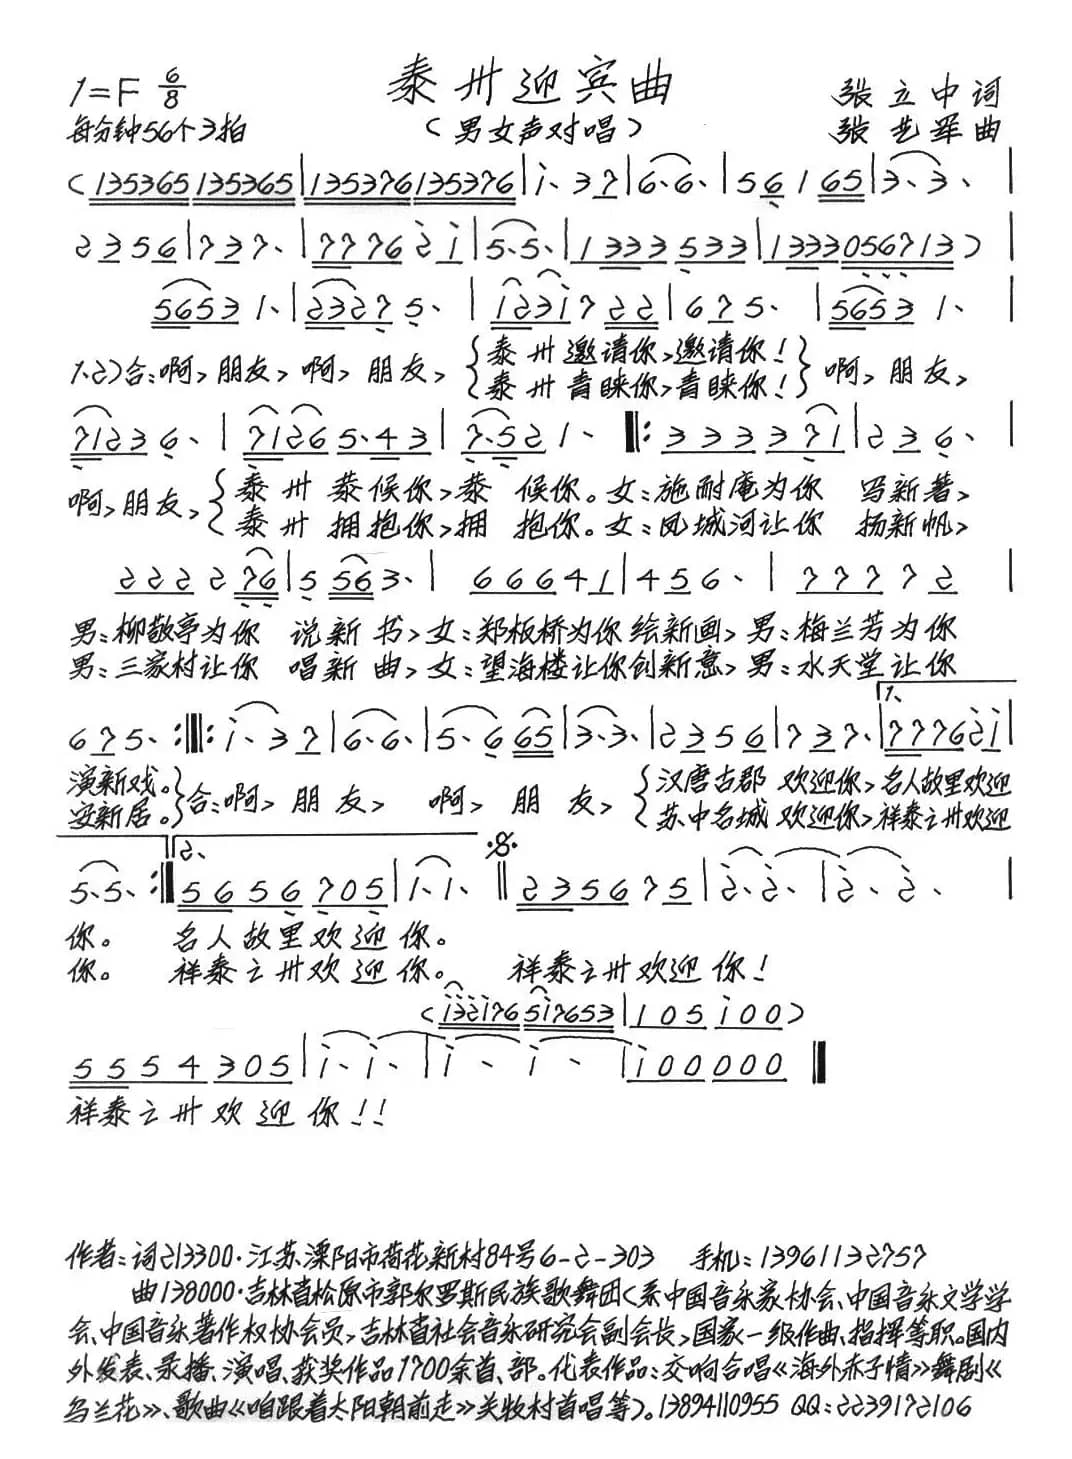 泰州迎宾曲
1=F 6/8
张立中词
每分钟56个3拍
（男女声对唱）
张艺军曲
（135365 135365|135376 135376|i、37|6、6、|561 65|3、3、|
2356|737、|7776 2i|5、5、|1333 533|1333056713）|
56531、|23275、|123i7 22|675、|56531、|
1、2）合：啊，朋友，啊，朋友，{泰州邀请你，邀请你！}啊，朋友，
{泰州青睐你，青睐你！}
71236、|7126 5、43|7、521、|:333371|236、|
啊，朋友，{泰州恭候你，恭候你。女：施耐庵为你 写新著，
{泰州拥抱你，拥抱你。女：凤城河让你 扬新帆，
2222 76|5 563、|66641|456、|77772|
男：柳敬亭为你 说新书，女：郑板桥为你绘新画，男：梅兰芳为你
男：三家村让你 唱新曲，女：望海楼让你创新意，男：水天堂让你
1、
675、:||:i、37|6、6、|5、6 65|3、3、|2356|737、|7776 2i|
演新戏。}合：啊，朋友， 啊，朋友，{汉唐古郡 欢迎你，名人故里欢迎
安新居。} {苏中名城 欢迎你，祥泰之州欢迎
2、
5、5、:|5656 705|1、1、||2356 75|2、2、|2、2、|
你。 名人故里欢迎你。
你。 祥泰之州欢迎你。 祥泰之州欢迎你！
（i32i76 5i7653|105 i00）
5554 305|i、i、|i、i、|i00000||
祥泰之州欢迎你！！
作者：词213300·江苏溧阳市荷花新村84号6-2-303 手机：13961132757
曲138000·吉林省松原市郭尔罗斯民族歌舞团（系中国音乐家协会、中国音乐文学学
会、中国音乐著作权协会员，吉林省社会音乐研究会副会长，国家一级作曲、指挥等职。国内
外发表、录播、演唱、获奖作品1700余首、部。代表作品：交响合唱《海外赤子情》舞剧《
乌兰花》、歌曲《咱跟着太阳朝前走》关牧村首唱等）。13894110955 QQ：2239172106